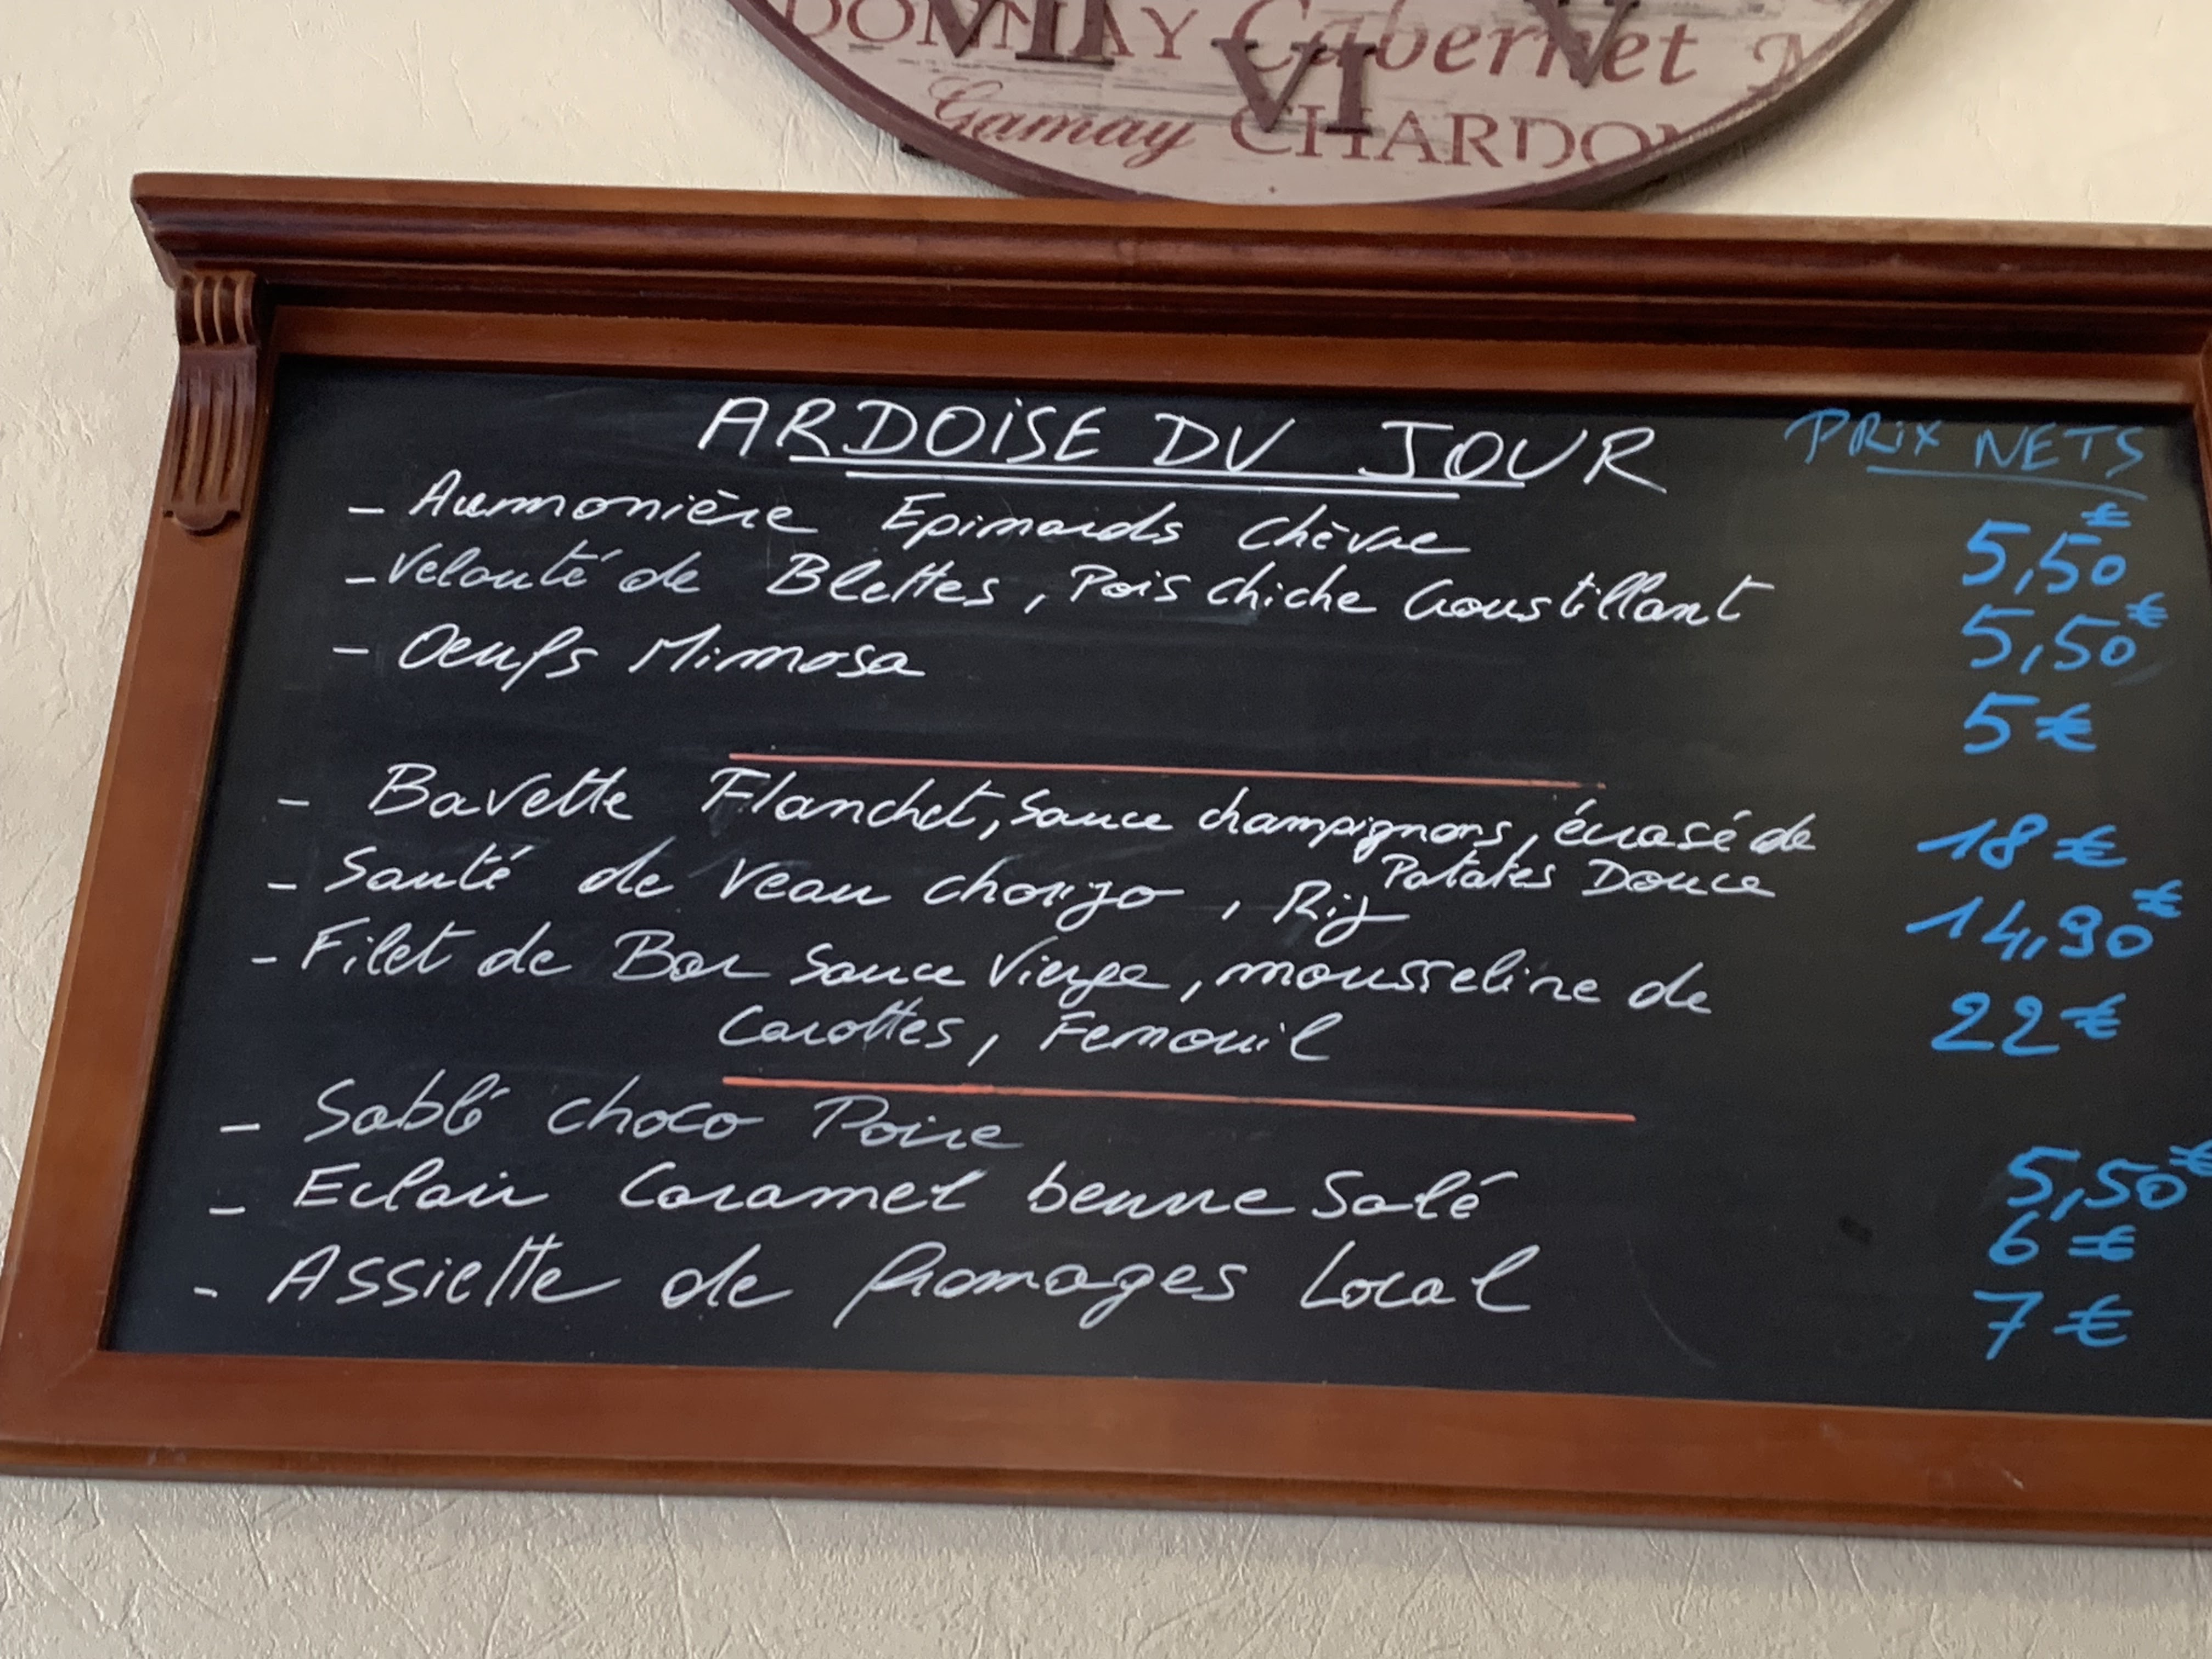 DONNAY Cabernet
VII VI V
Gamay CHARDON
ARDOISE DU JOUR PRIX NETS
- Aumonière Epinards Chèvre 5,50€
- Velouté de Blettes, Pois chiche Croustillant 5,50€
- Oeufs Mimosa 5€
- Bavette Flanchet, Sauce champignons, écrasé de 18€
Patates Douce
- Sauté de Veau chorizo, Riz 14,90€
- Filet de Bar Sauce Vierge, mousseline de 22€
Carottes, Fenouil
- Sablé choco Poire 5,50€
- Eclair Caramel beurre Salé 6€
- Assiette de fromages Local 7€